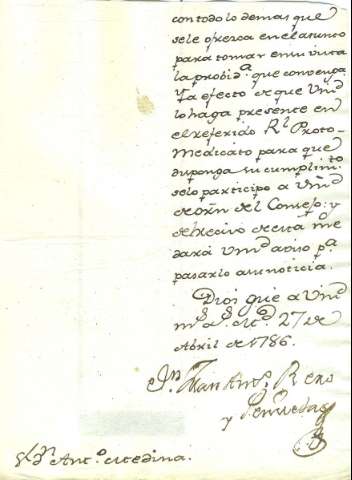 con todo lo demas que
se le ofrezca en el asunto
para tomar en su vista
la probid.ª que convenga.
Y a efecto de que Vmd
lo haga presente en
el referido Rl Proto-
Medicato para que
disponga su cumplim.to
se lo participo a Vmd
de orñ del Consejo: y
de el recivo de esta me
dará Vmd aviso p.ª
pasarlo a su noticia.
Dios gue a Vmd
m.s a.s Md. 27 de
Abril de 1786.
Antt.º
y
Sr Dn Ant.º Medina.